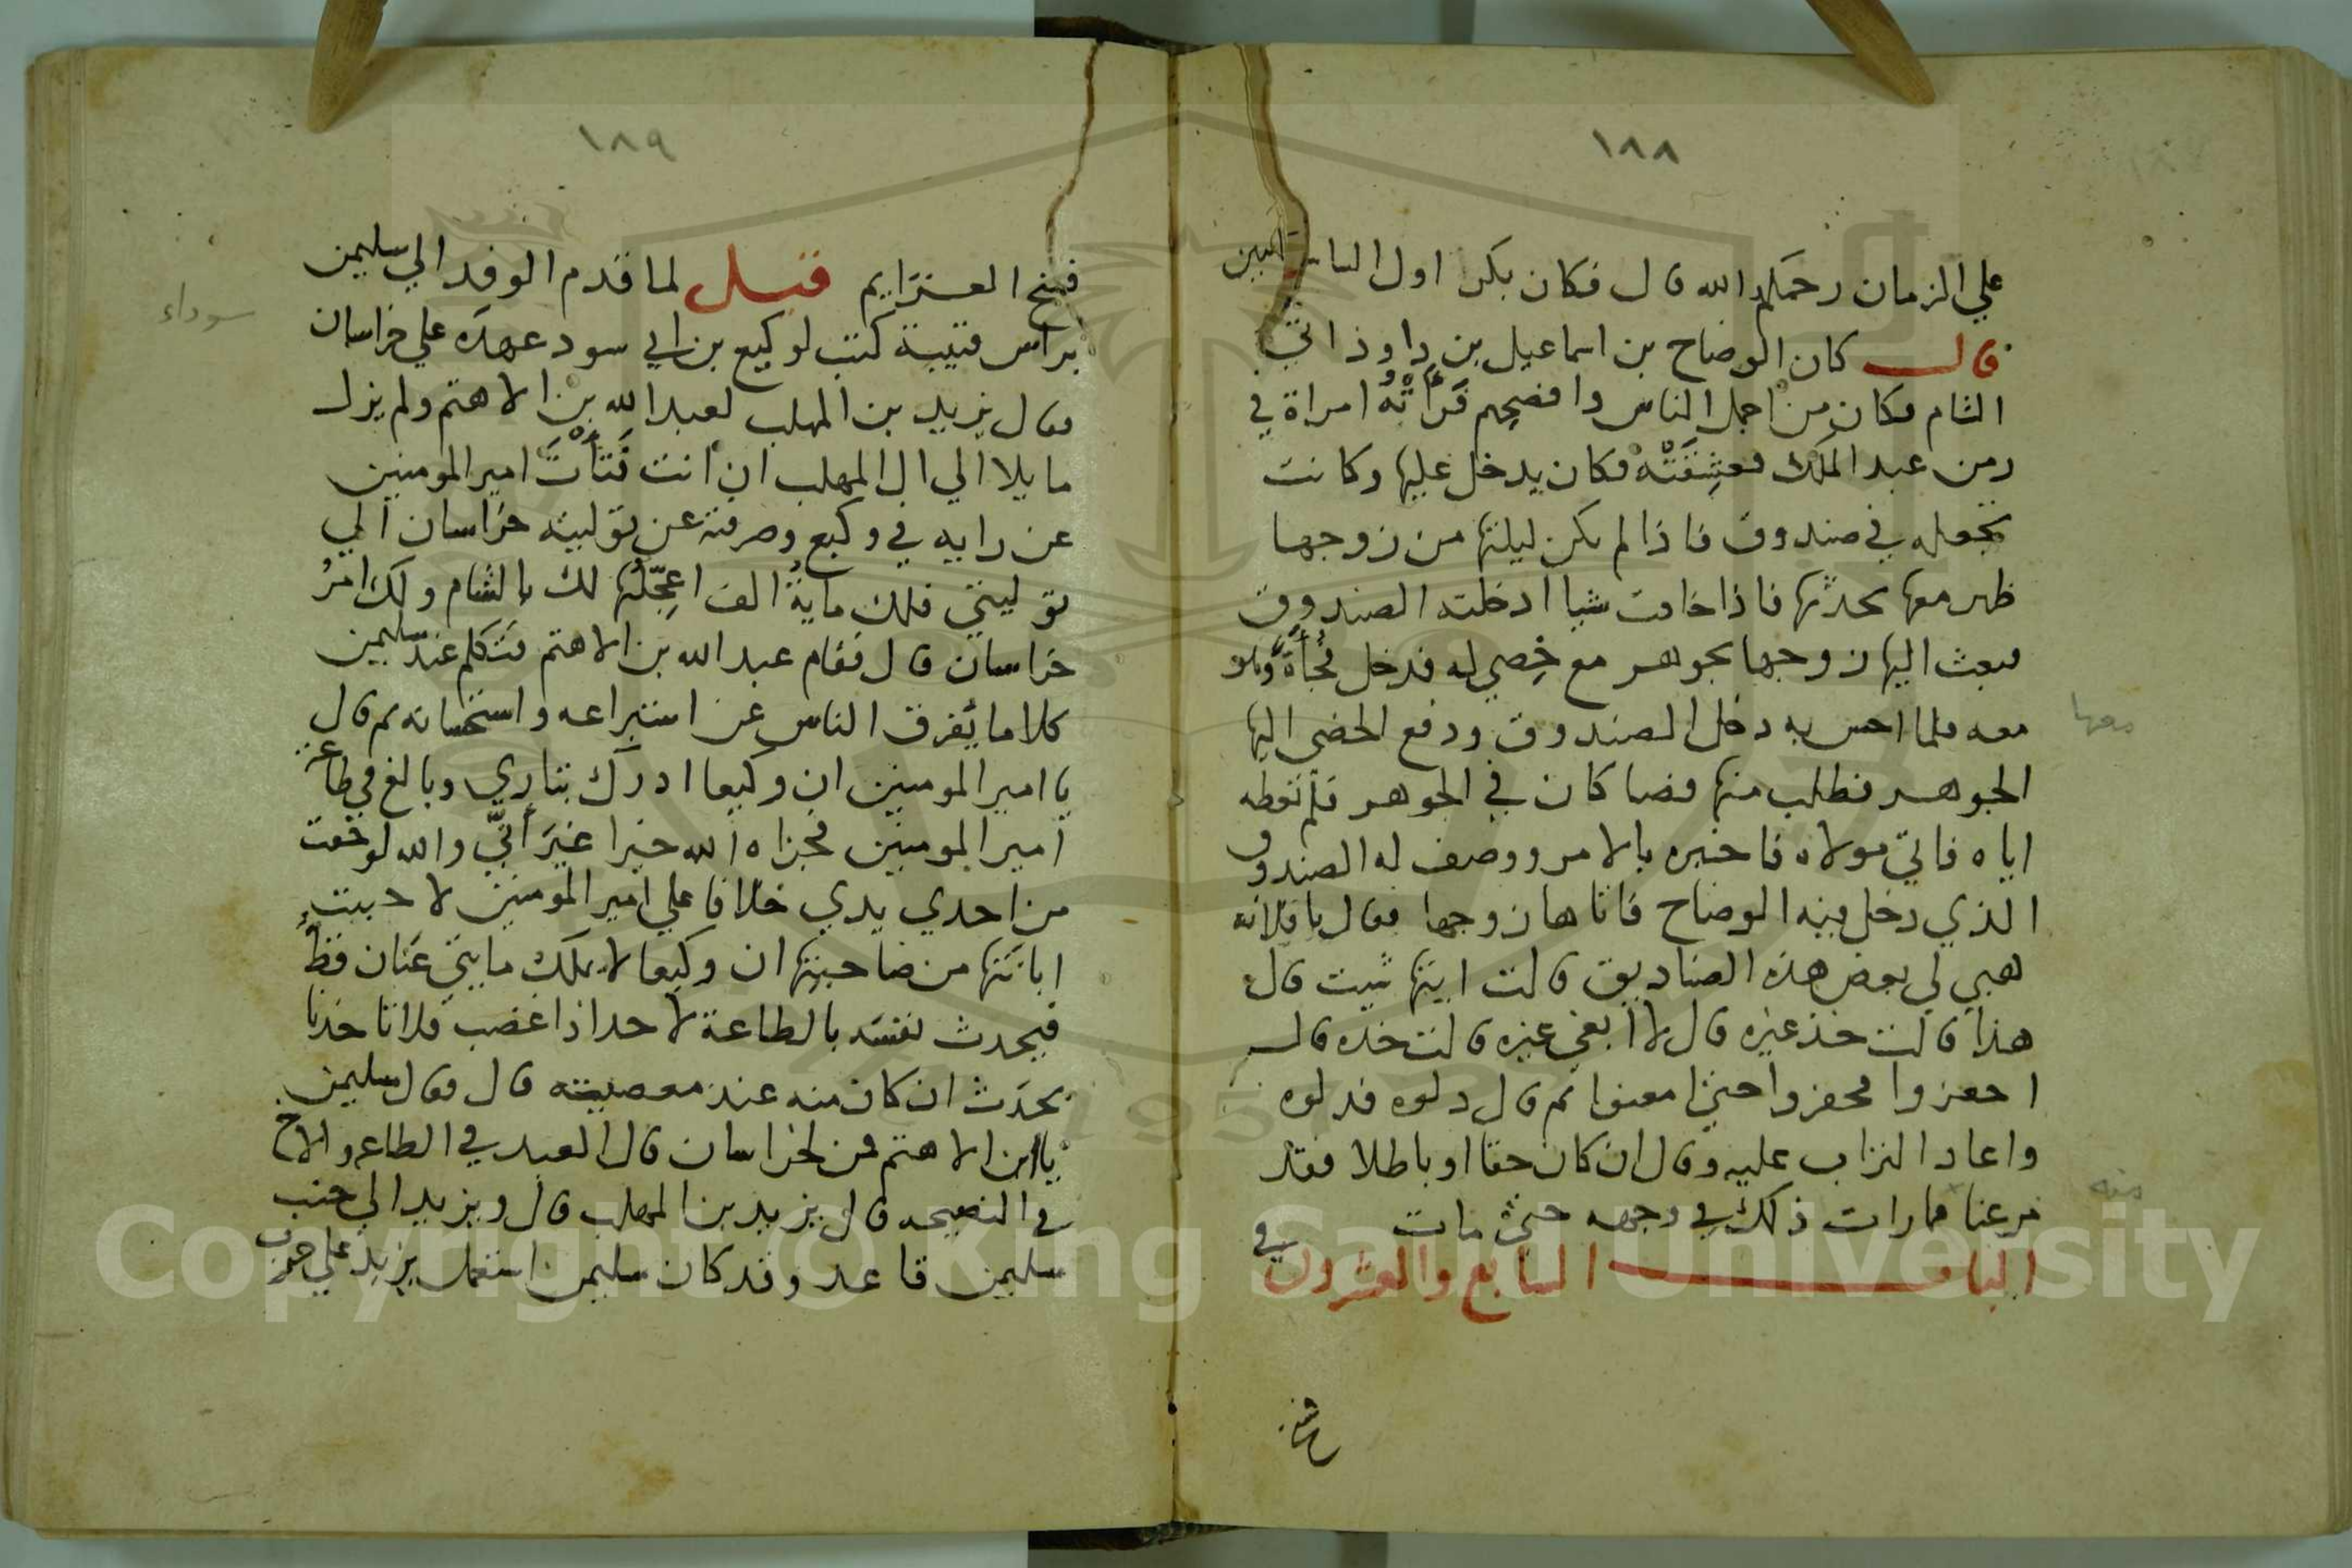 ١٨٨
علي الزمان رحمكم الله قال فكان بكر اول الباكين
قال كان الوضاح بن اسماعيل بن داوذ اتي
الشام فكان من اجمل الناس وافضحهم فَرَأَتْهُ امراة في
زمن عبد الملك فعشِقَتْهُ فكان يدخل عليها وكانت
تجعله في صندوق فاذا لم يكن ليلتها من زوجها
ظهر معها يحدثها فاذا خافت شيا ادخلته الصندوق
فبعث اليها زوجها بجوهر مع خِصي له فدخل فُجْأَةً
معه فلما احس به دخل الصندوق ودفع الخصى اليها
معها
الجوهر فطلب منها فصا كان في الجوهر فلم تعطه
اياه فاتي مولاه فاخبره بالامر ووصف له الصندوق
الذي دخل فيه الوضاح فاتاها زوجها فقال يا فلانه
هبي لي بعض هذه الصناديق قالت ايتها شيت قال
هذا قالت خذ غيره قال لا ابغي غيره قالت خذه قال
احفروا فحفروا حتى امعنوا ثم قال دلوه فدلوه
واعاد التراب عليه وقال ان كان حقا او باطلا فقد
فرغنا فما رات ذلك في وجهه حتى مات
منه
الباب السابع والعشرون في
فسخ
١٨٩
فسخ العزايم قيل لما قدم الوفد الي سليمن
براس قتيبة كتب لوكيع بن ابي سود عهده علي خراسان
سوداء
فقال يزيد بن المهلب لعبد الله بن الاهتم ولم يزل
مايلا الي ال المهلب ان انت فَثَأْتَ امير المومنين
عن رايه في وكيع وصرفته عن توليته خراسان الي
توليتي فلك ماية الف اعجّلها لك بالشام ولك امرُ
خراسان قال فقام عبد الله بن الاهتم فتكلم عند سليمن
كلاما يُفرق الناس عن استبراعه واستحسانه ثم قال
يا امير المومنين ان وكيعا ادرك بثاري وبالغ في طاعة
امير المومنين فجزاه الله خيرا غيرَ أنّي والله لو خفت
من احدي يدي خلافا علي امير المومنين لاحببت
ابانتها من صاحبتها ان وكيعا لا يملك مايتي عَنان قطُّ
فيحدث نفسه بالطاعة لاحد اذا غضب فلانا خذنا
بحدث ان كان منه عند معصيته قال فقال سليمن
يا ابن الاهتم فمن لخراسان قال العبد في الطاعه والاخ
في النصيحه قال يزيد بن المهلب قال ويزيد الي جنب
سليمن قاعد وقد كان سليمن استعمل يزيد علي حرب